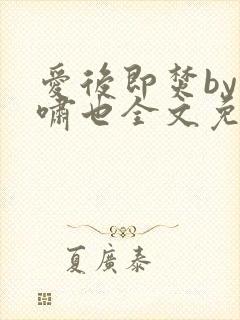 愛後即焚by
嘯也全文免
夏廣泰